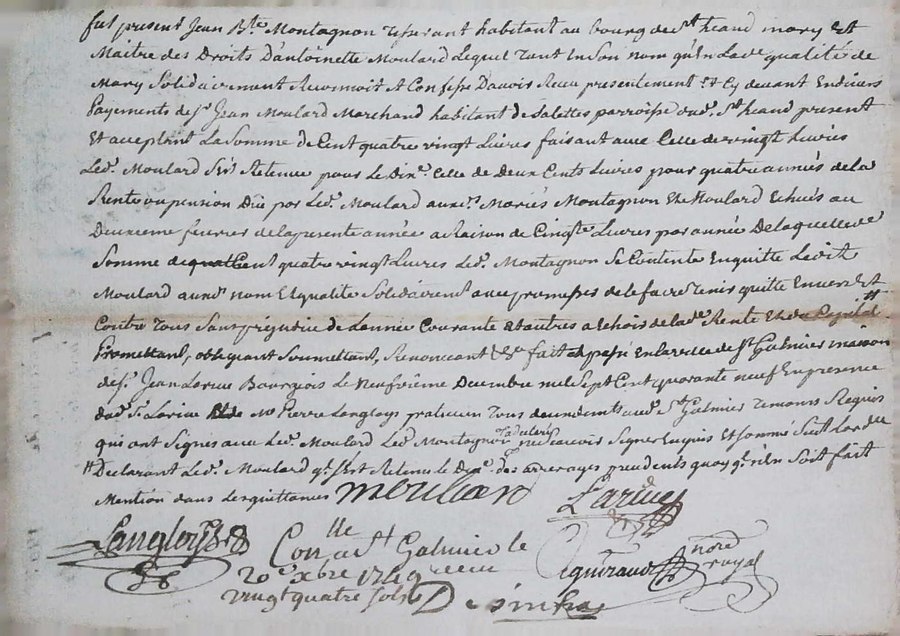 fut présent Jean Bte Montagnon tisserant habitant au bourg de st heand mary Et
Maitre des Droits D'antoinette Moulard Lequel Tant En Son nom qu'En Lade qualité de
Mary Solidairement A Confessé D'avoir Receu presentement Et Cy devant En divers
Payements de sr Jean Moulard Marchand habitant de Salettes parroisse dud. St heand present
Et acceptant La Somme de Cent quatre vingt Livres faisant avec Celle de vingt Livres
Led. Moulard Retenue pour Le Dixe Celle de Deux Cents Livres pour quatre années de la
Rente ou pension Düe par Led. Moulard aux Mariés Montagnon Et Moulard Echues au
Deuxieme fevrier de la presente année a Raison de Cinqte Livres par année De laquelle de
Somme de Cent quatre vingt Livres Led. Montagnon Se Contente En quitte Ledit
Moulard aud. nom Et qualité Solidairemt avec promesses de le faire Tenir quitte Envers Et
Contre Tous Sans prejudice de L'année Courante Et autres a Echoir de lade Rente Et du
Promettant, obligeant Soumettant, Renonceant &a fait et passé En la ville de St Galmier maison
de sr. Jean Larive Bourgeois Le Neufvième Decembre mil Sept Cent quarante neuf En presence
dud. Sr Larive Et de Me Pierre Langloys praticien Tous deux dud. St Galmier Temoins Requis
qui ont Signés avec Led. Moulard Led. Montagnon ne Scavoir Signer Enquis Et Sommé
Declarant Led. Moulard qu'il S'est Retenu le Dixe des arrerages precedents quoyqu'il n'En Soit fait
Mention dans Les quittances Moulard Larive
Langloys
Conllé a St Galmier le
20e xbre 1749 receu
vingt quatre sols
nore
royal